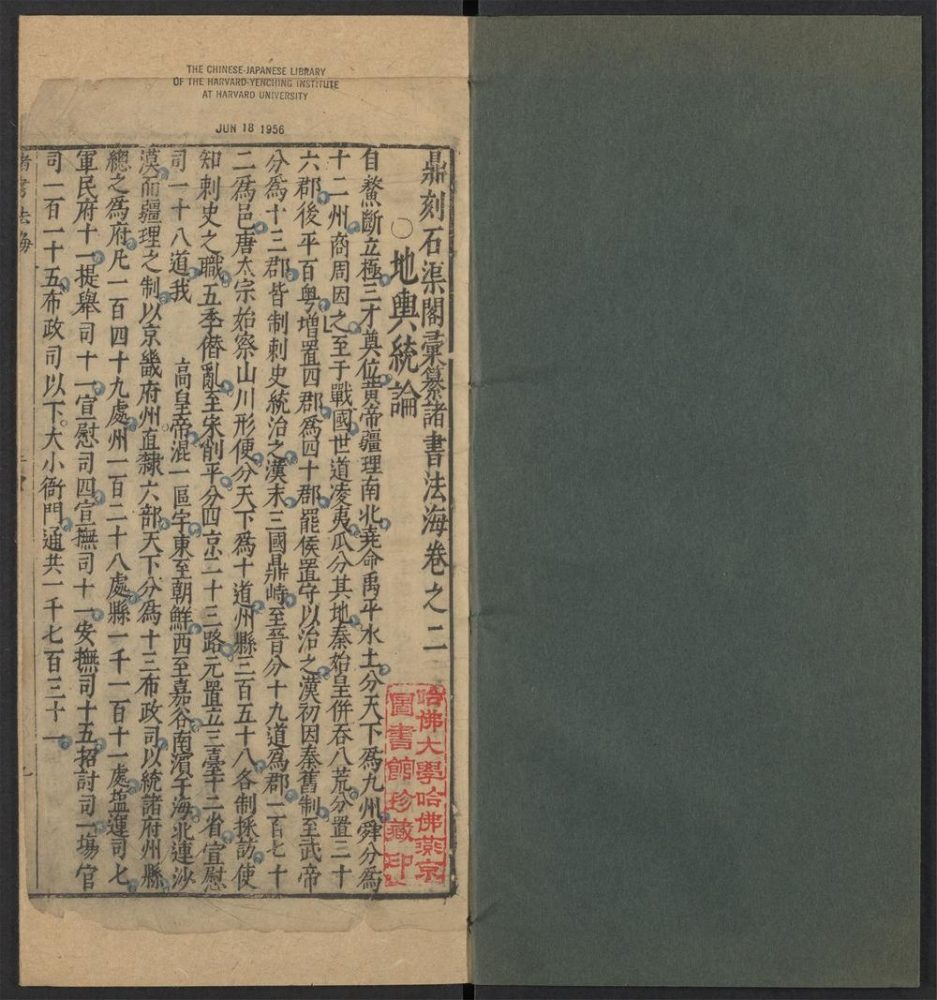 THE CHINESE-JAPANESE LIBRARY
OF THE HARVARD-YENCHING INSTITUTE
AT HARVARD UNIVERSITY
JUN 18 1956
鼎刻石渠閣彙纂諸書法海卷之二
○地輿統論
自鰲斷立極三才奠位黃帝疆理南北堯命禹平水土分天下爲九州舜分爲
十二州商周因之至于戰國世道凌夷瓜分其地秦始皇併吞八荒分置三十
六郡後平百粤增置四郡爲四十郡罷侯置守以治之漢初因秦舊制至武帝
分爲十三郡皆制刺史統治之漢末三國鼎峙至晉分十九道爲郡一百七十
二爲邑唐太宗始察山川形便分天下爲十道州縣三百五十八各制採訪使
知刺史之職五季僭亂至宋削平分四京二十三路元置立三臺十二省宣慰
司一十八道我 高皇帝混一區宇東至朝鮮西至嘉谷南濱于海北連沙
漠而疆理之制以京畿府州直隸六部天下分爲十三布政司以統諸府州縣
總之爲府凡一百四十九處州一百二十八處縣一千一百十一處塩運司七
軍民府十一提舉司十一宣慰司四宣撫司十一安撫司十五招討司一塲官
司一百一十五布政司以下大小衙門通共一千七百三十一
諸書法海
哈佛大學哈佛燕京
圖書館珍藏印